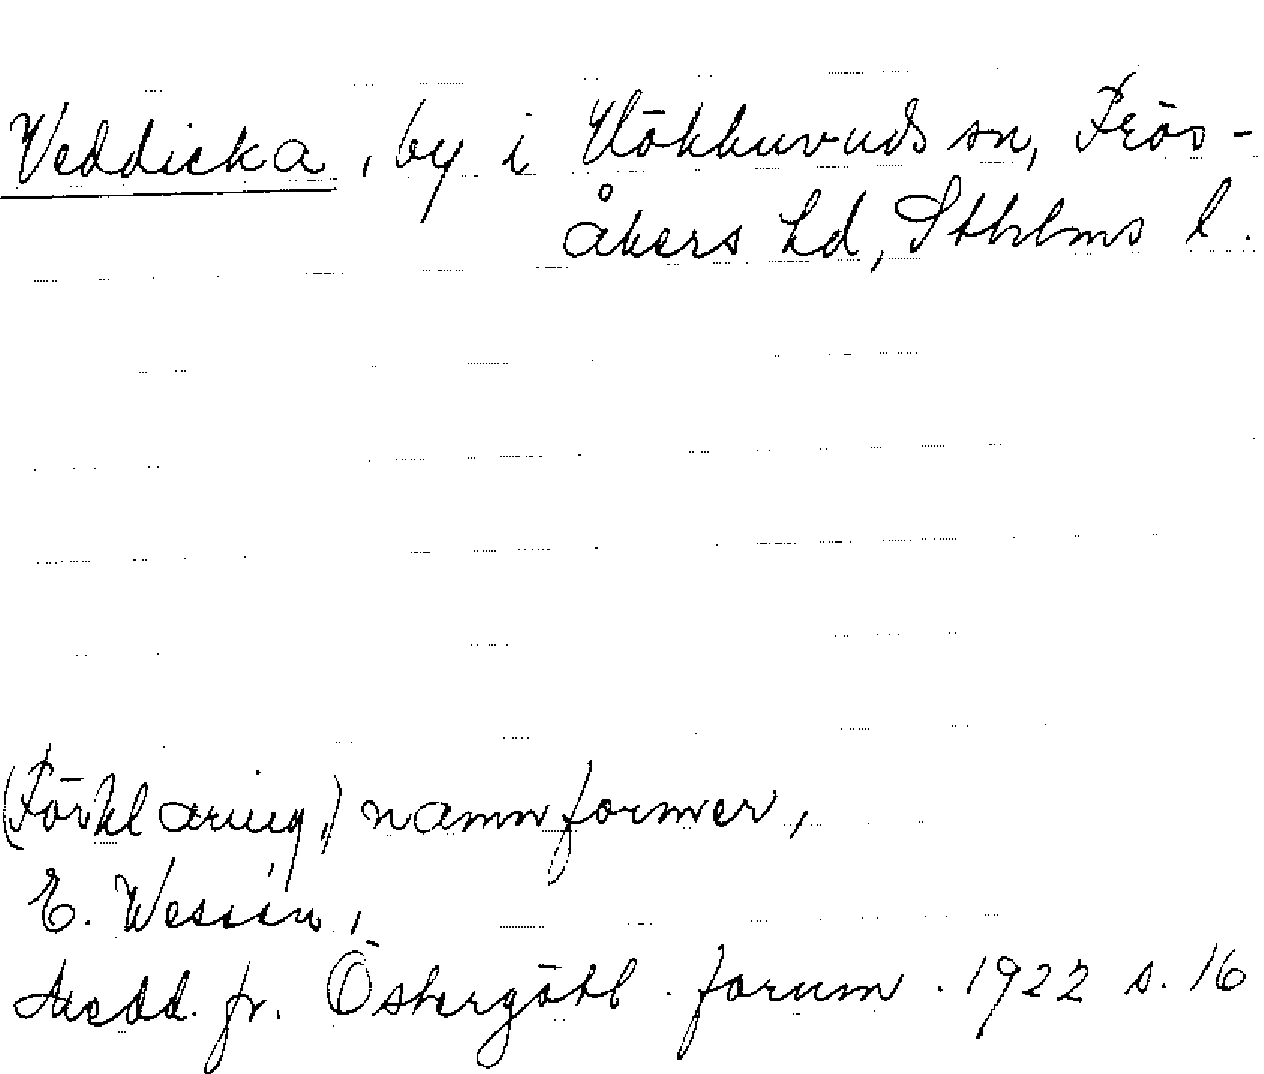 Veddicka, by i Hökhuvuds sn, Frös-
åkers hd, Sthlms l.
(Förklaring,) namnformer,
E. Wessén,
Medd. fr. Östergötl. fornm. 1922 s. 16